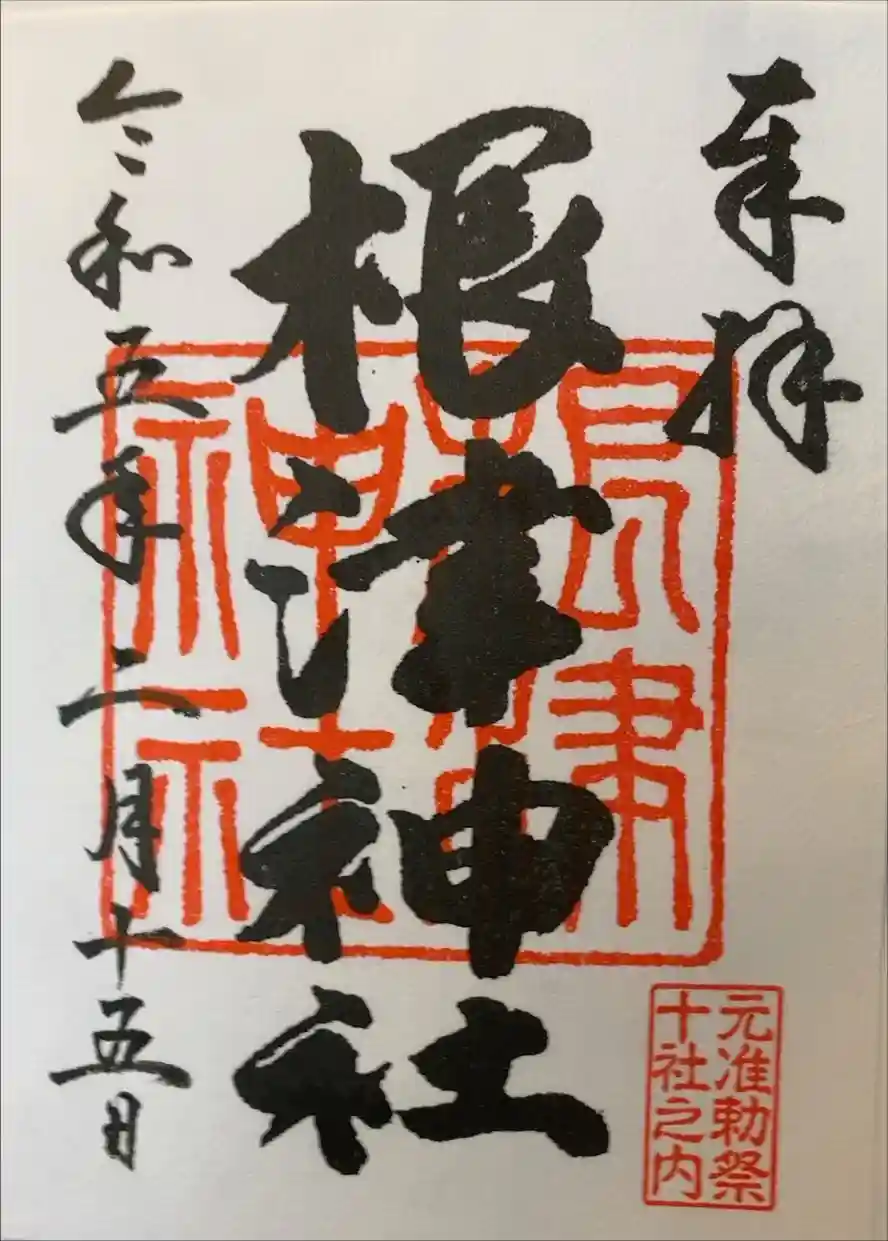 奉拝
根津神社
令和五年二月十五日
根津神社
元准勅祭
十社之内